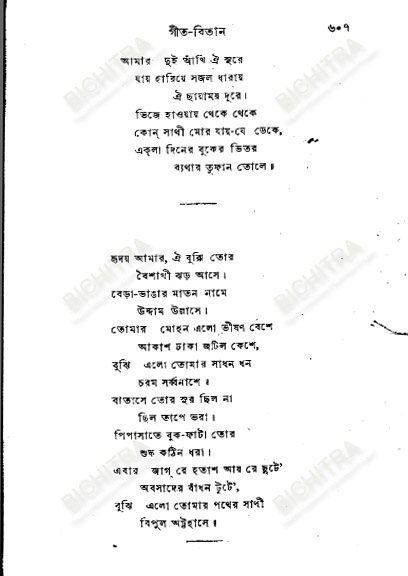 গীত-বিতান
৬০৭
আমার দুই আঁখি ঐ সুরে
যায় হারিয়ে সজল ধারায়
ঐ ছায়াময় দূরে।
ভিজে হাওয়ায় থেকে থেকে
কোন্ সাথী মোর যায়-যে ডেকে,
একলা দিনের বুকের ভিতর
ব্যথার তুফান তোলে॥
হৃদয় আমার, ঐ বুঝি তোর
বৈশাখী ঝড় আসে।
বেড়া-ভাঙার মাতন নামে
উদ্দাম উল্লাসে।
তোমার মোহন এলো ভীষণ বেশে
আকাশ ঢাকা জটিল কেশে,
বুঝি এলো তোমার সাধন ধন
চরম সর্ব্বনাশে॥
বাতাসে তোর সুর ছিল না
ছিল তাপে ভরা।
পিপাসাতে বুক-ফাটা তোর
শুষ্ক কঠিন ধরা।
এবার জাগ্ রে হতাশ আয় রে ছুটে'
অবসাদের বাঁধন টুটে',
বুঝি এলো তোমার পথের সাথী
বিপুল অট্টহাসে॥
BICHITRA
BICHITRA
BICHITRA
BICHITRA
BICHITRA
BICHITRA